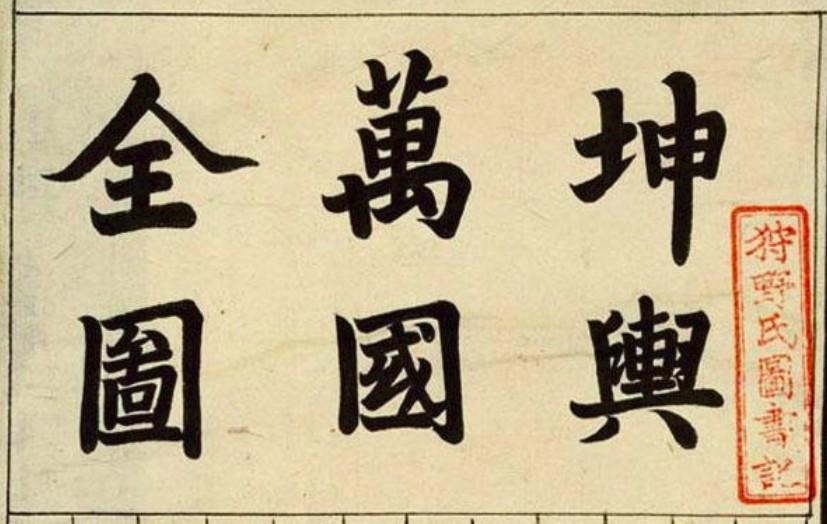 坤輿
萬國
全圖
狩野氏圖書記